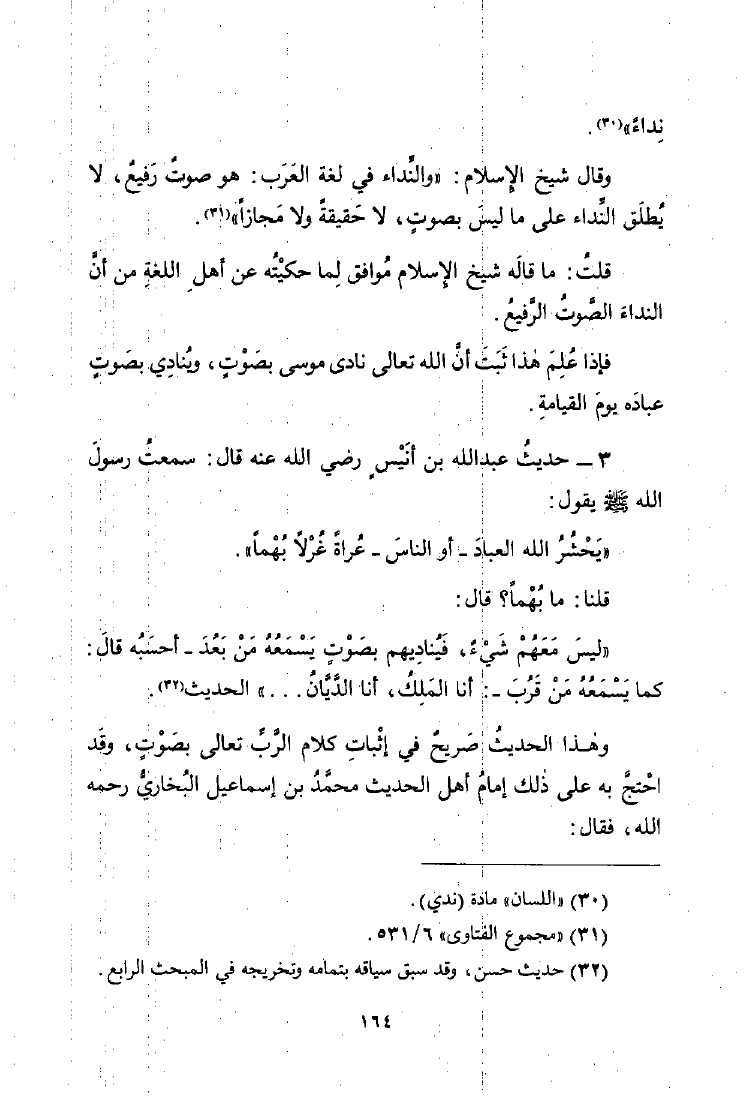 نِداءً»(٣٠).
وقال شيخ الإسلام: «والنِّداء في لغة العَرَب: هو صوتٌ رَفيعٌ، لا
يُطلَق النِّداء على ما ليسَ بصوتٍ، لا حَقيقةً ولا مَجازاً»(٣١).
قلتُ: ما قالَه شيخ الإسلام مُوافق لِما حكيْتُه عن أهلِ اللغةِ من أنَّ
النداءَ الصَّوتُ الرَّفيعُ.
فإذا عُلِمَ هٰذا ثَبَتَ أنَّ الله تعالى نادى موسى بصَوْتٍ، ويُنادِي بصَوتٍ
عبادَه يومَ القيامةِ.
٣ ـ حديثُ عبدالله بن أنَيْسٍ رضي الله عنه قال: سمعتُ رسولَ
الله ﷺ يقول:
«يَحْشُرُ الله العبادَ ـ أو الناسَ ـ عُراةً غُرْلاً بُهْماً».
قلنا: ما بُهْماً؟ قال:
«ليسَ مَعَهُمْ شَيْءٌ، فَيُنادِيهم بصَوْتٍ يَسْمَعُهُ مَنْ بَعُدَ ـ أحسَبُه قالَ:
كما يَسْمَعُهُ مَنْ قَرُبَ ـ: أنا المَلِكُ، أنا الدَّيَّانُ...» الحديث(٣٢).
وهٰـذا الحديثُ صَريحٌ في إثْباتِ كلام الرَّبِّ تعالى بصَوْتٍ، وقَد
احْتجَّ به على ذٰلك إمامُ أهل الحديث محمَّدُ بن إسماعيل البُخاريُّ رحمه
الله، فقال:
(٣٠) «اللسان» مادة (ندي).
(٣١) «مجموع الفتاوى» ٥٣١/٦.
(٣٢) حديث حسن، وقد سبق سياقه بتمامه وتخريجه في المبحث الرابع.
١٦٤